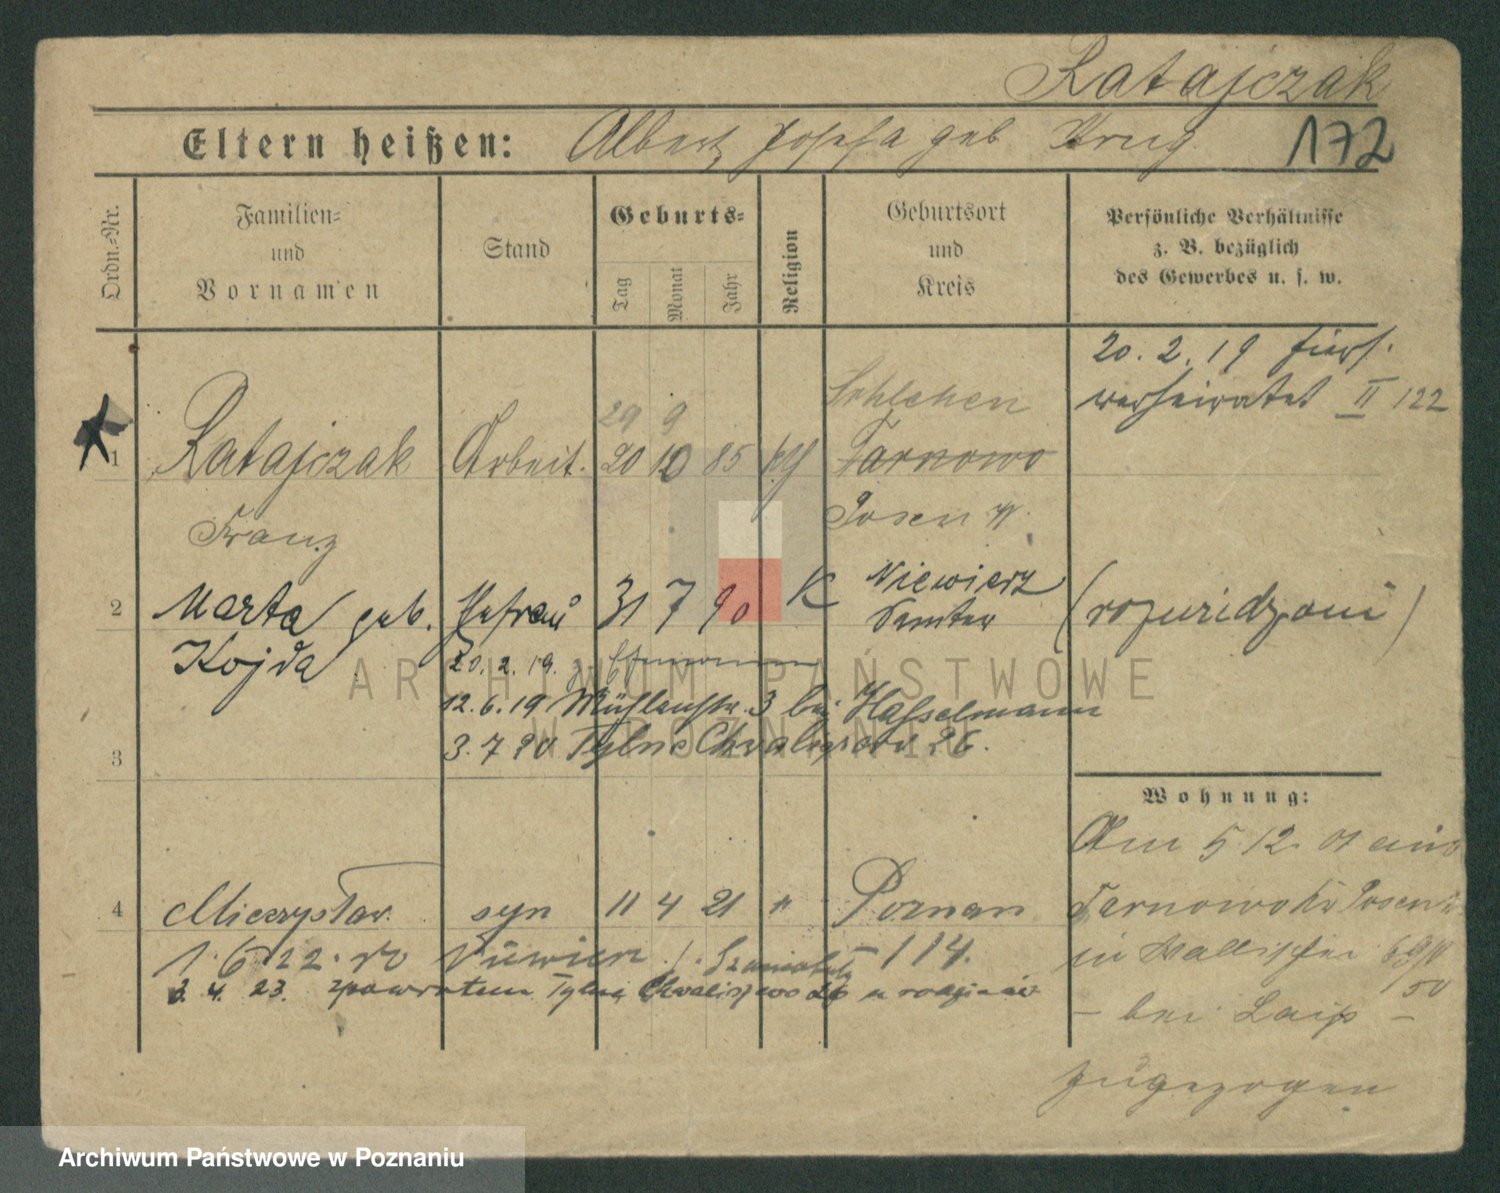 Ratajczak
Eltern heißen: Albert, Josefa geb Krug.
172
Ordn.-Nr.
Familien-
und
Vornamen
Stand
Geburts-
Tag
Monat
Jahr
Religion
Geburtsort
und
Kreis
Persönliche Verhältnisse
z. B. bezüglich
des Gewerbes u. s. w.
20. 2. 19 hier
verheiratet II 122
29 9
Schlehen
1 Ratajczak Arbeit. 20 10 85 Tarnowo
Franz Posen W.
2 Marta geb. Ehefrau 31 7 90 K Niewierz
Samter
(rozwiedzioni)
Kojda 20. 2. 19.
12. 6. 19 Mühlenstr. 3 bei Hasselmann
3 3. 7 20 Tylne Chwaliszewo 26.
Wohnung:
Am 5 12. 01 aus
Tarnowo Kr Posen W
in Wallischei
– bei –
zugezogen
4 Mieczysław syn 11 4 21 " Poznan
1. 6 22. do Niewierz 114.
3. 4. 23. zpowrotem Tylne Chwaliszewo 26
ARCHIWUM PAŃSTWOWE
W POZNANIU
Archiwum Państwowe w Poznaniu